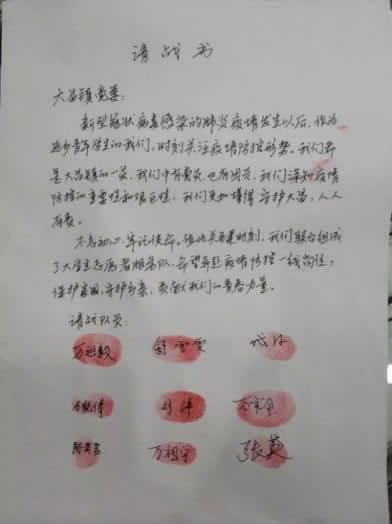 请战书
大昌镇党委:
新型冠状病毒感染的肺炎疫情发生以后,作为
返乡青年学生的我们,时刻关注疫情防控形势。我们都
是大昌镇的一员,我们中有党员,也有团员,我们深知疫情
防控的重要性和艰巨性,我们更加懂得守护大昌,人人
有责。
不忘初心,牢记使命。值此关键时刻,我们联合组成
了大学生志愿者服务队,希望奔赴疫情防控一线岗位,
保护家园,守护乡亲,贡献我们的青春力量。
请战队员:
万祖毅
张英